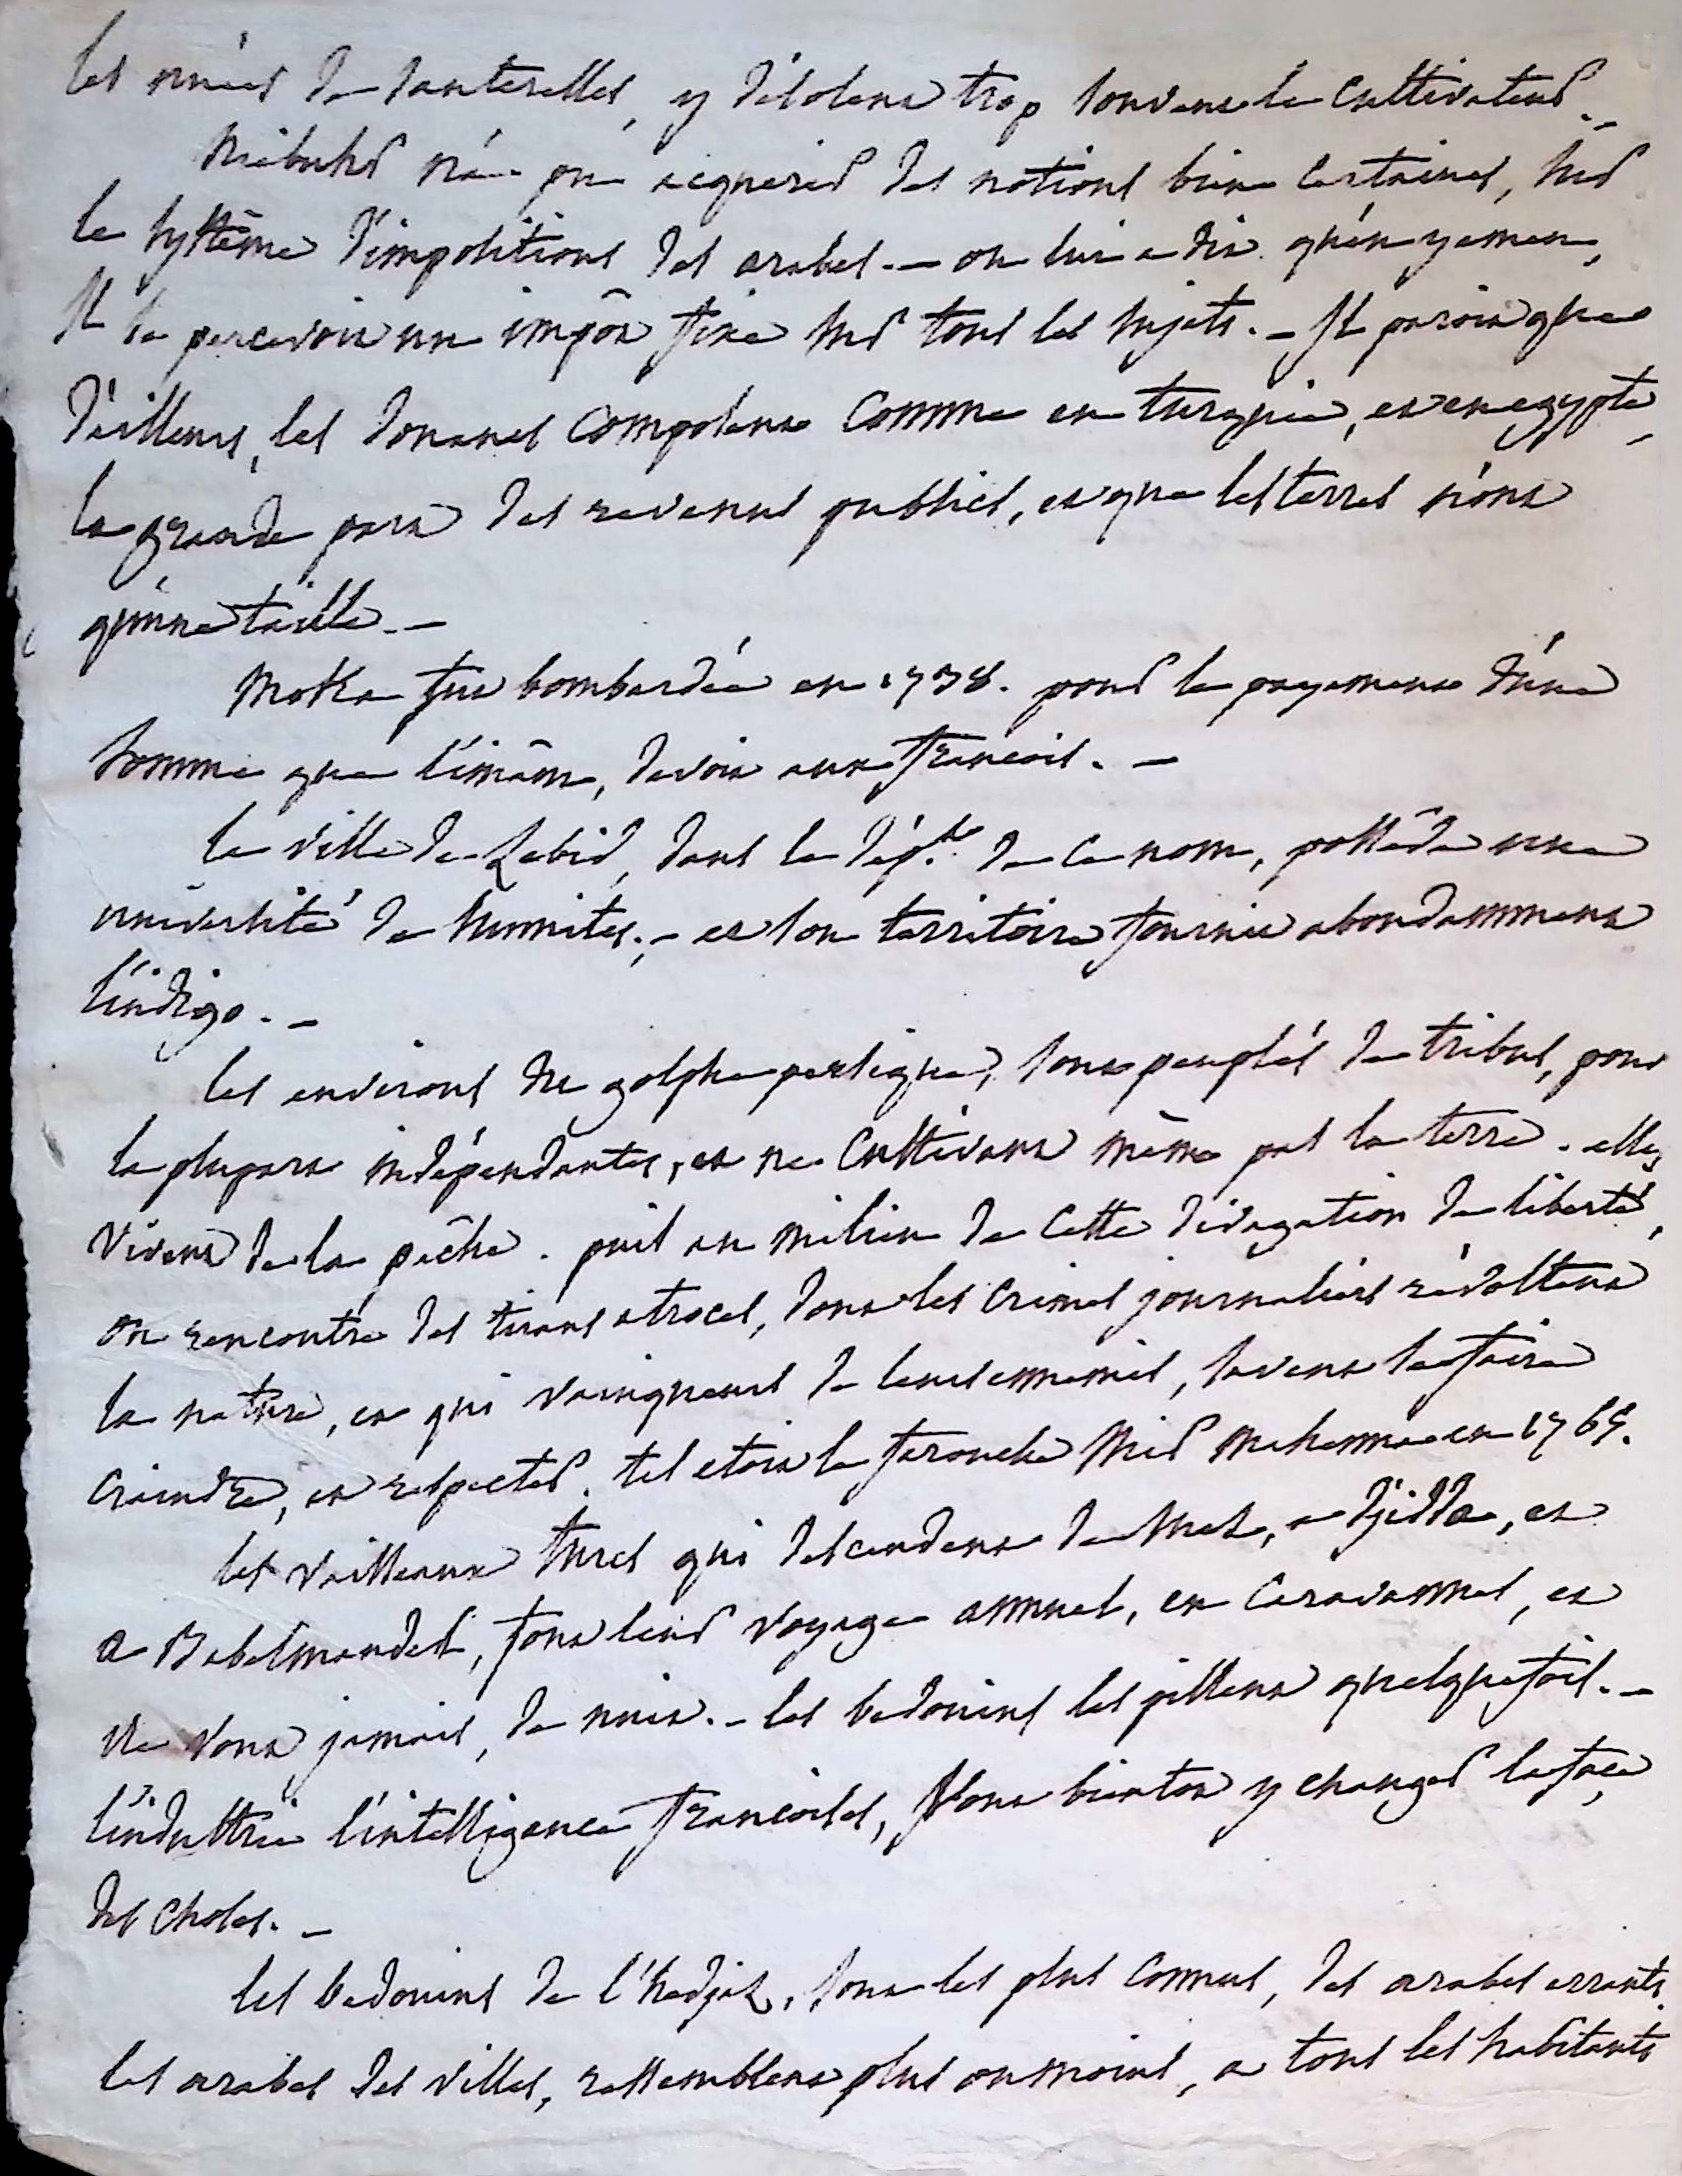 les nuées de sauterelles, y désolent trop souvent le cultivateur.-
Niebuhr n'a pu acquerir des notions bien certaines, sur
le système d'impositions des arabes. - on lui a dit qu'en yemen,
Il se percevoit un impôt fixe sur tous les sujets. - Il paroit que
d'ailleurs, les douanes composent comme en turquie, et en egypte,
la grande part des revenus publics, et que les terres n'ont
qu'une taille. -
Moka fut bombardée en 1738. pour le payement d'une
somme que l'imâm, devoit aux françois. -
la ville de Zebid, dans le dép.te de ce nom, possède une
université de sunnites; - et son territoire fournit abondamment
l'indigo. -
les environs du golphe persique, sont peuplés de tribus, pour
la plupart indépendantes, et ne cultivant même pas la terre. elles
vivent de la pêche. puis au milieu de cette divagation de liberté,
on rencontre des tirans atroces, dont les crimes journaliers révoltent
la nature, et qui vainqueurs de leurs ennemis, savent se faire
craindre, et respecter. tel etoit le farouche Mir Mahenna en 1765.
les vaisseaux turcs qui descendent de Suez, a Djidda, et
a Babelmandel, font leur voyage annuel, en caravannes, et
ne vont jamais, de nuit. - les bedouins les pillent quelquefois. -
l'industrie l'intelligence françoises, vont bientot y changer la face,
des choses. -
les bedouins de l'hedjaz, sont les plus connus, des arabes errants.
les arabes des villes, ressemblent plus ou moins, a tous les habitants